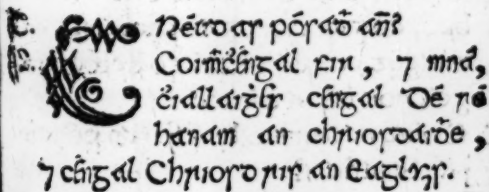 C. CRéud as pósaḋ añ?
F. Coiṁċeangal fir, ⁊ mná,
ċiallaiġeas ceangal Dé ré
hanam an chriosdaiḋe,
⁊ ceangal Chriosd ris an Eagluis.